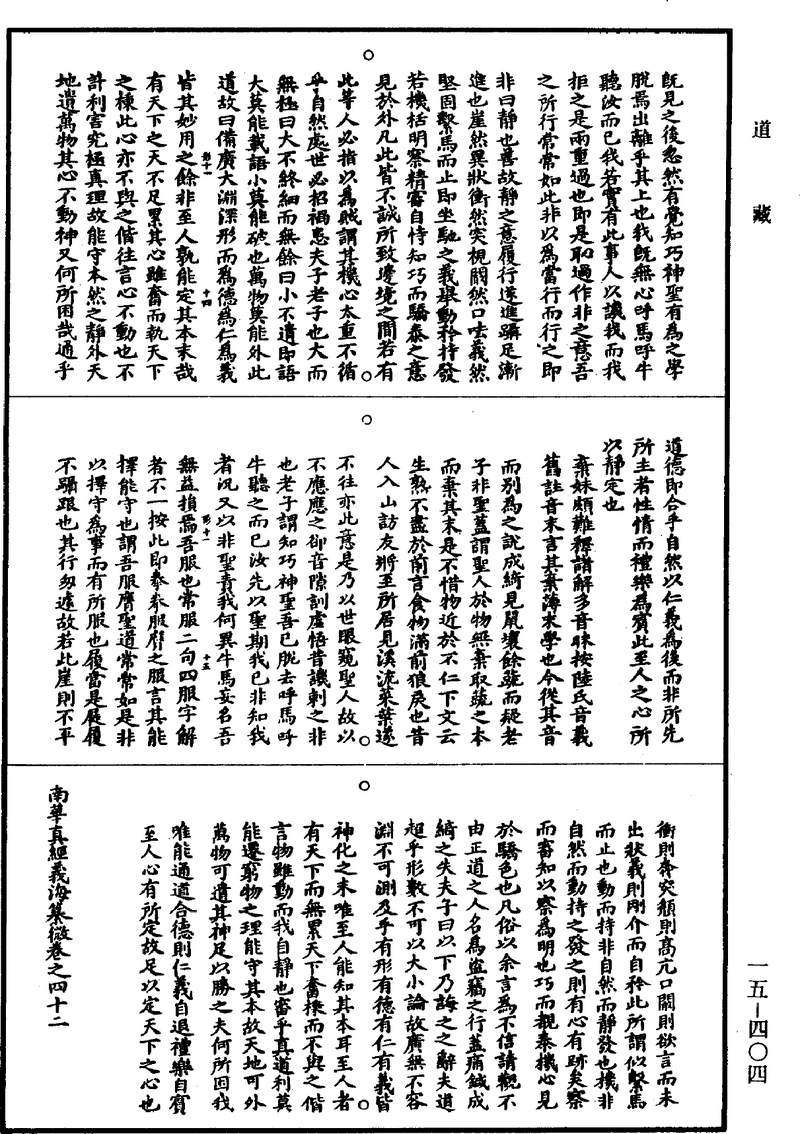 道藏
既見之後忽然有覺知巧神聖有為之學
脫焉出離乎其上也我旣無心呼馬呼牛
聽汝而已我若實有此事人以議我而我
拒之是兩重過也即是恥過作非之意吾
之所行常常如此非以為當行而行之即
非曰靜也善故靜之意履行遂進躡足漸
進也崖然異狀衝然突視闞然口呿義然
堅固繫馬而止即坐馳之義舉動矜持發
若機栝明察精審自恃知巧而驕泰之意
見於外凡此皆不誠所致邊境之間若有
此等人必指以為賊謂其機心太重不循
乎自然處世必招禍患夫子老子也大而
無極曰大不終細而無餘曰小不遺即語
大莫能載語小莫能破也萬物莫能外此
道故曰備廣大淵深形而為德為仁為義
皆其妙用之餘非至人孰能定其本末哉
有天下之天不足累其心雖奮而執天下
之棟此心亦不與之偕往言心不動也不
計利害究極真理故能守本然之靜外天
地遺萬物其心不動神又何所困哉通乎
道德即合乎自然以仁義為後而非所先
所主者性情而禮樂為賓此至人之心所
以靜定也
棄妹頗難釋諸解多音昧按陸氏音義
舊註音末言其棄薄末學也今從其音
而別為之說成綺見鼠壤餘蔬而疑老
子非聖蓋謂聖人於物無棄取蔬之本
而棄其末是不惜物近於不仁下文云
生熟不盡於前言食物滿前狼戾也昔
人入山訪友將至所居見溪流菜葉遂
不往亦此意是乃以世眼窺聖人故以
不應應之卻音隙訓虛悟昔譏刺之非
也老子謂知巧神聖吾已脫去呼馬呼
牛聽之而已汝先以聖期我已非知我
者況又以非聖責我何異牛馬妄名吾
無益損焉吾服也常服二句四服字解
者不一按此即拳拳服膺之服言其能
擇能守也謂吾服膺聖道常常如是非
以擇守為事而有所服也履當是屣履
不躡跟也其行匆遽故若此崖則不平
衝則奔突頯則高亢口闞則欲言而未
出狀義則剛介而自矜此所謂似繫馬
而止也動而持非自然而靜發也機非
自然而動持之發之則有心有跡矣察
而審知以察為明也巧而覩泰機心見
於驕色也凡俗以余言為不信請觀不
由正道之人名為盜竊之行蓋痛鍼成
綺之失夫子曰以下乃誨之之辭夫道
超乎形數不可以大小論故廣無不容
淵不可測及乎有形有德有仁有義皆
神化之末唯至人能知其本耳至人者
有天下而無累天下奮棅而不與之偕
言物雖動而我自靜也審乎真道利莫
能遷窮物之理能守其本故天地可外
萬物可遺其神足以勝之夫何所困我
唯能通道合德則仁義自退禮樂自賓
至人心有所定故足以定天下之心也
南華真經義海纂微卷之四十二
一五－四〇四